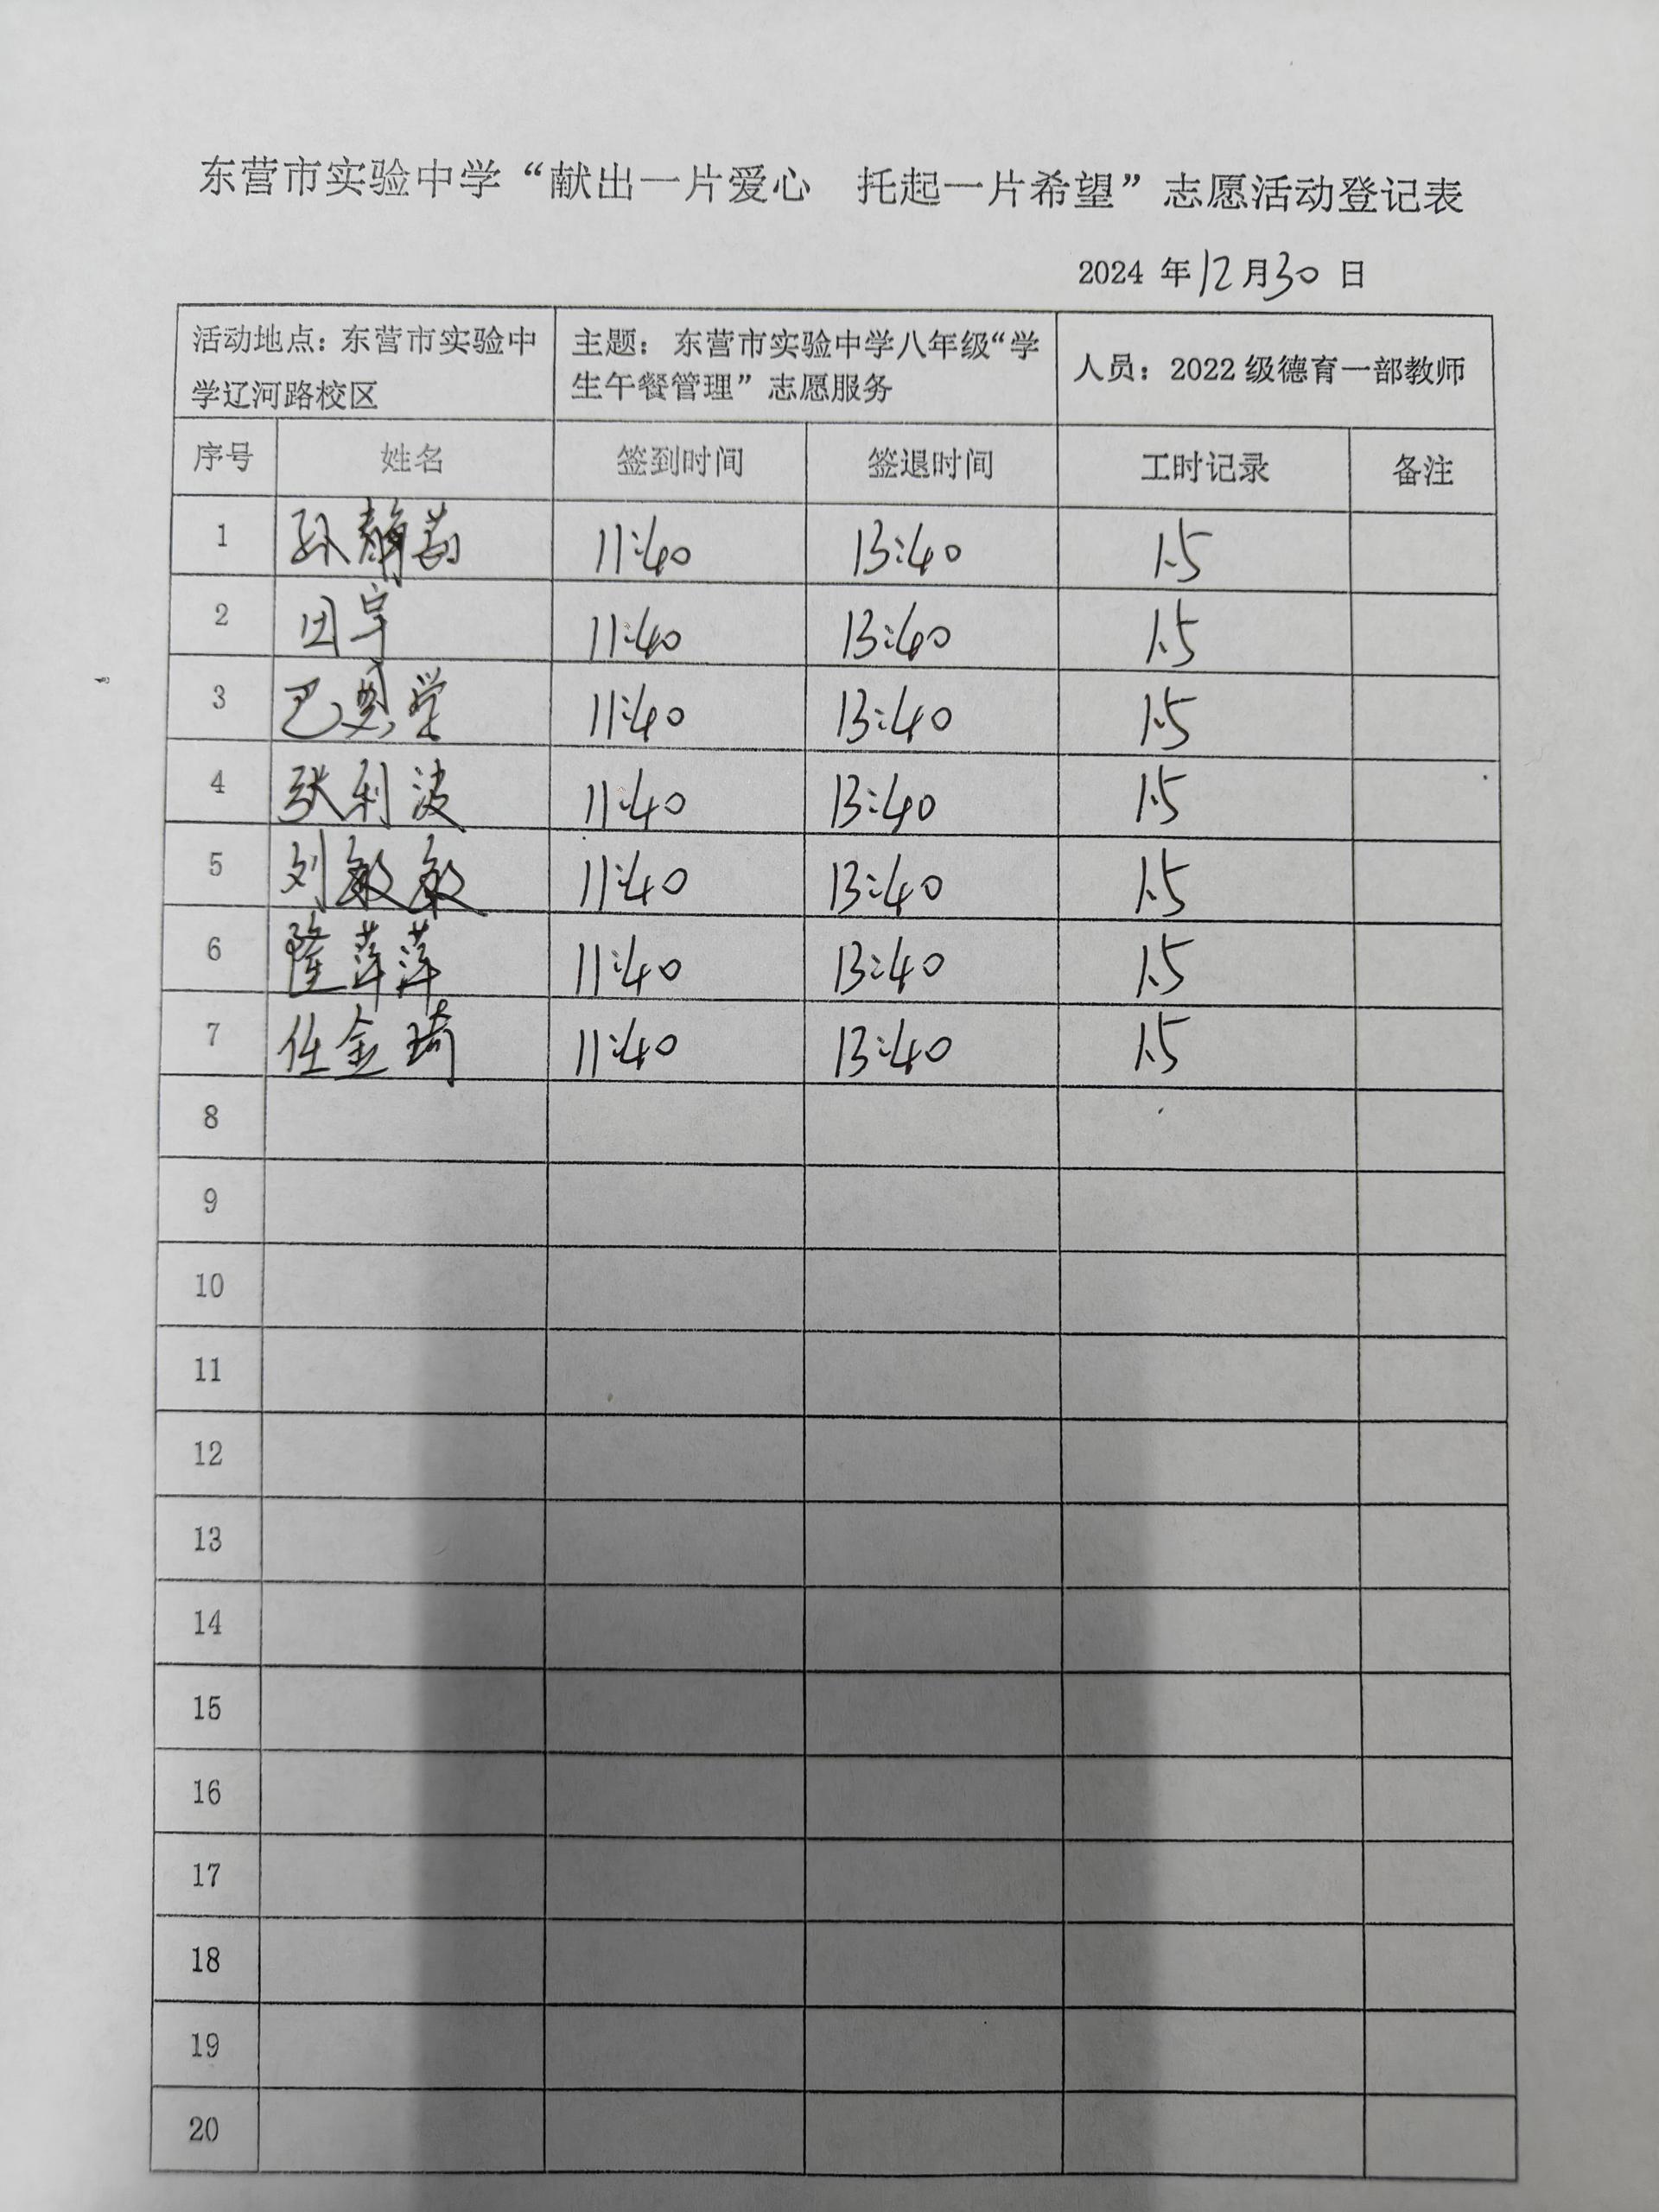 东营市实验中学“献出一片爱心 托起一片希望”志愿活动登记表
2024 年12月30日
活动地点：东营市实验中学辽河路校区 主题：东营市实验中学八年级“学生午餐管理”志愿服务 人员：2022级德育一部教师
序号 姓名 签到时间 签退时间 工时记录 备注
1 孙静茹 11:40 13:40 1.5
2 田宇 11:40 13:40 1.5
3 巴 堂 11:40 13:40 1.5
4 张利波 11:40 13:40 1.5
5 刘敏敏 11:40 13:40 1.5
6 隆萍萍 11:40 13:40 1.5
7 任金琦 11:40 13:40 1.5
8
9
10
11
12
13
14
15
16
17
18
19
20